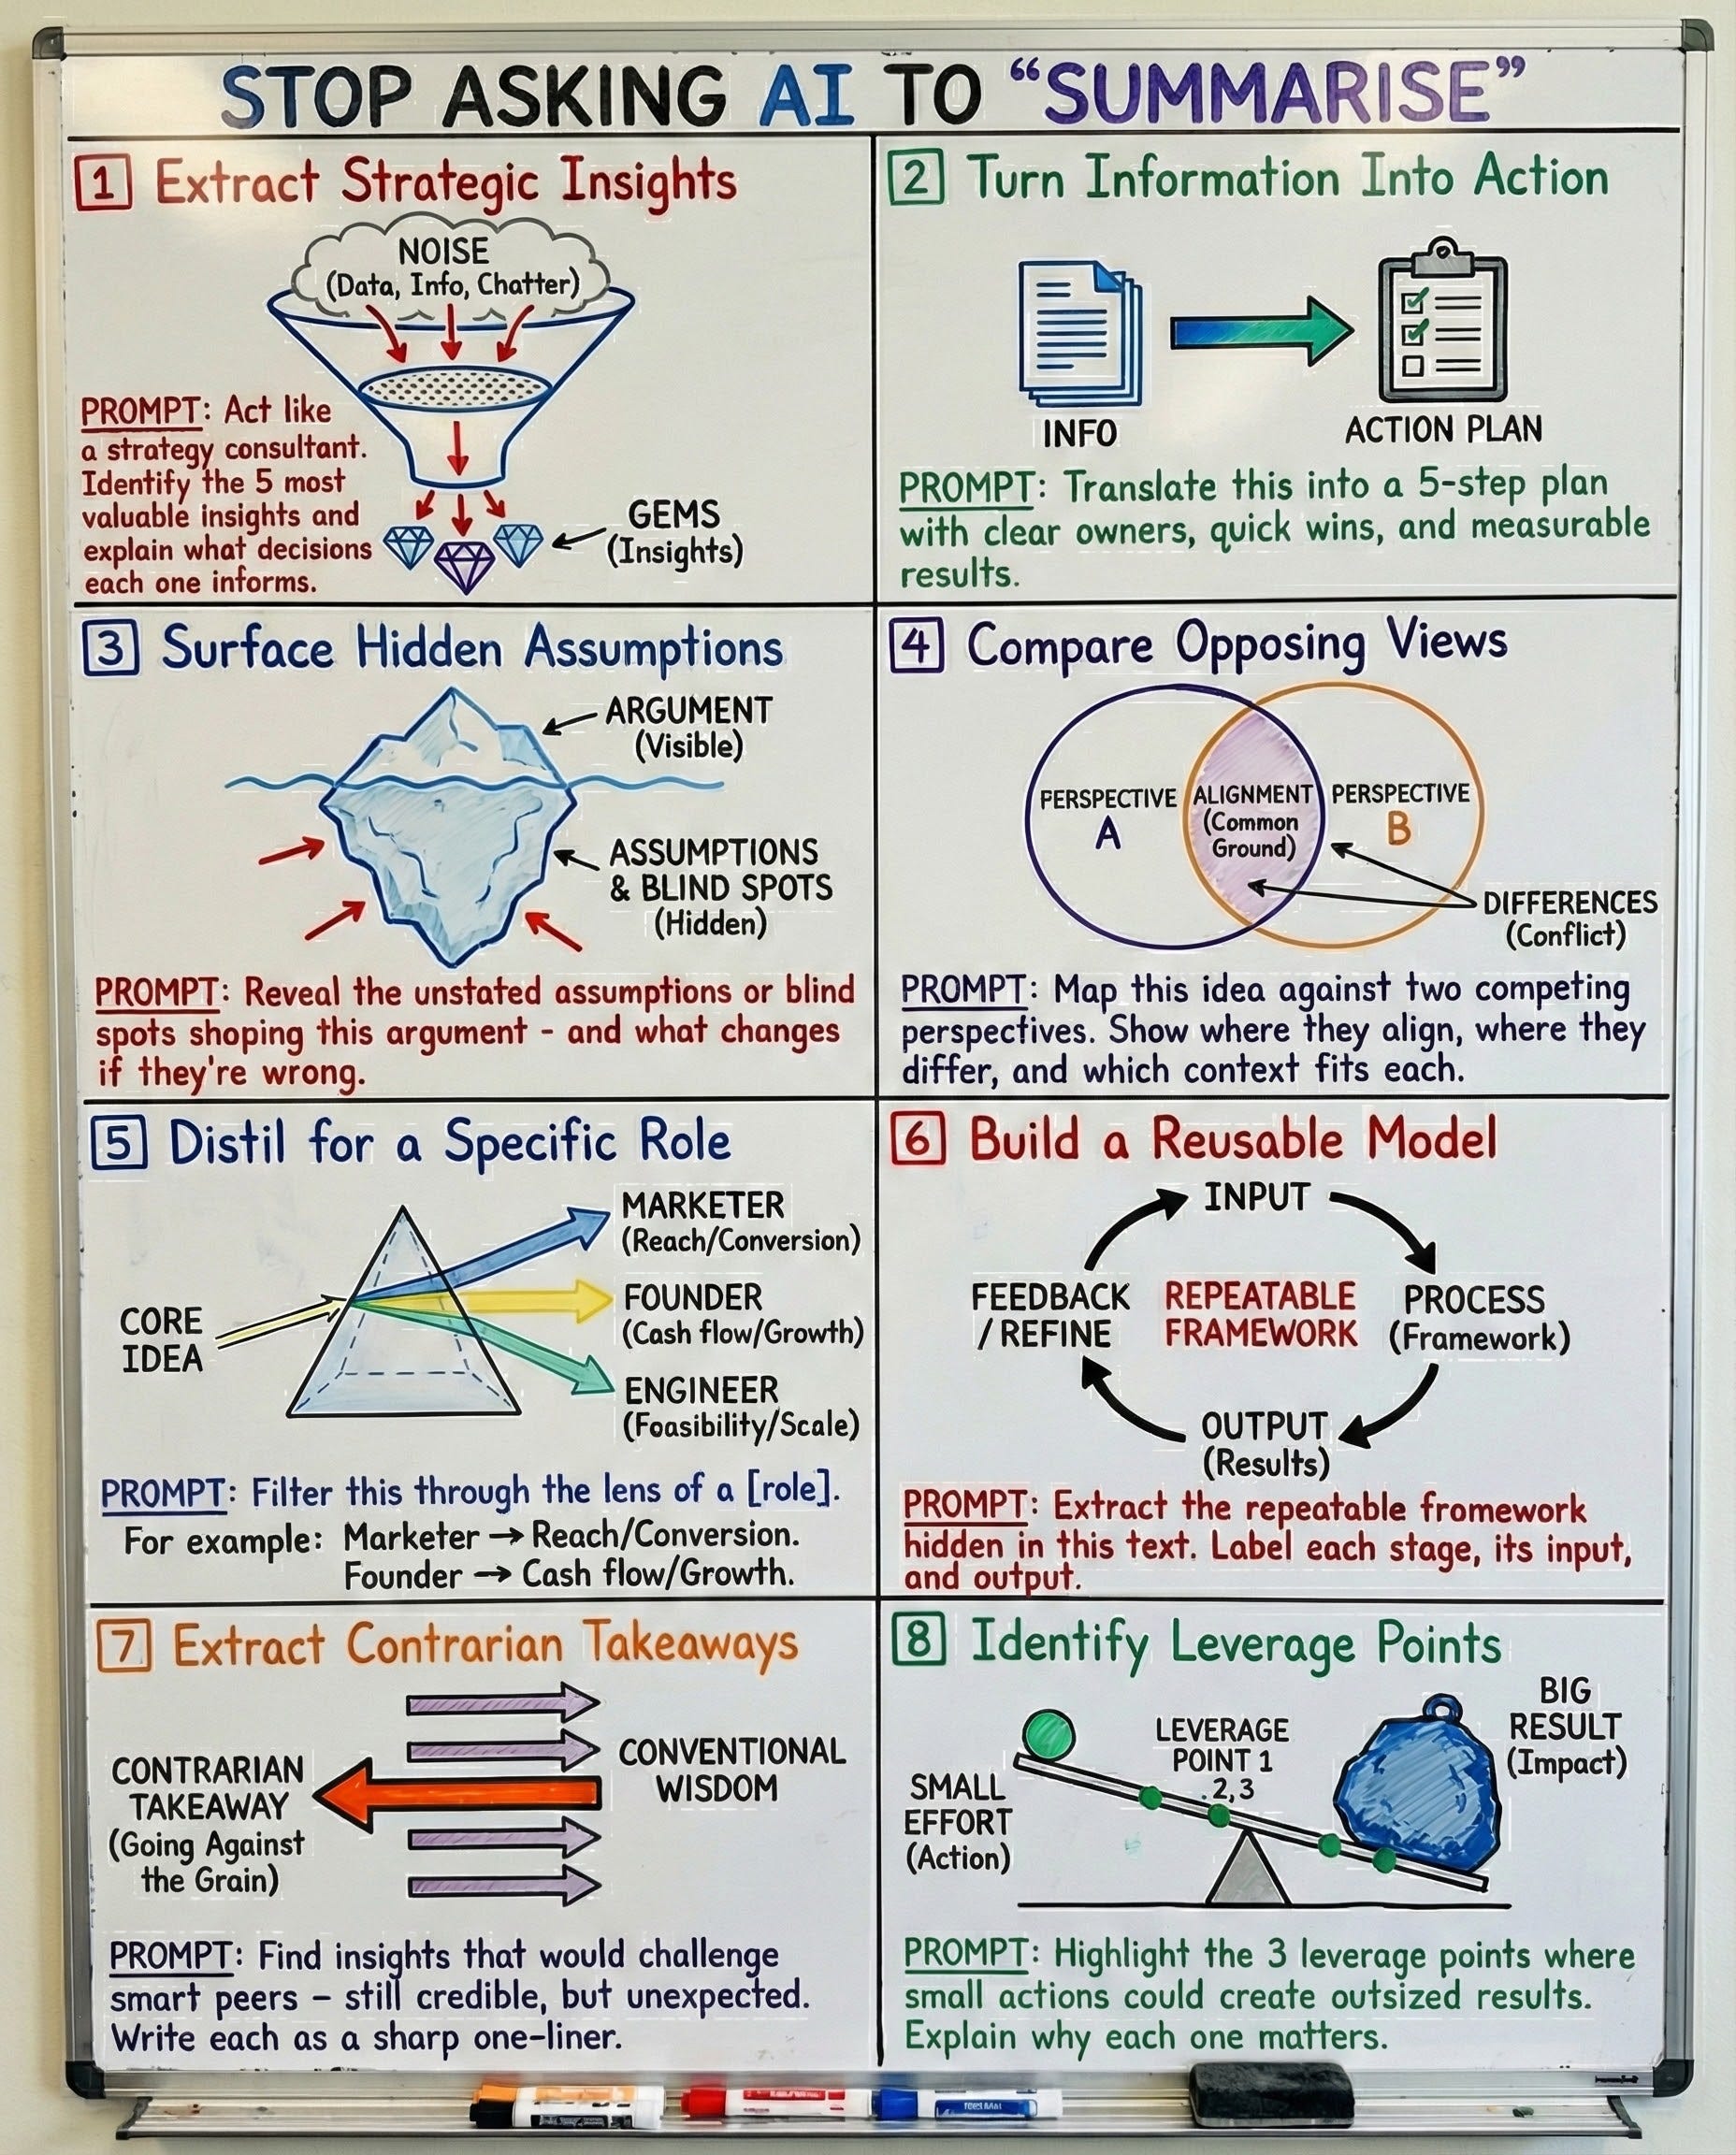 STOP ASKING AI TO “SUMMARISE”
1 Extract Strategic Insights
NOISE
(Data, Info, Chatter)
PROMPT: Act like
a strategy consultant.
Identify the 5 most
valuable insights and
explain what decisions
each one informs.
GEMS
(Insights)
2 Turn Information Into Action
INFO
ACTION PLAN
PROMPT: Translate this into a 5-step plan
with clear owners, quick wins, and measurable
results.
3 Surface Hidden Assumptions
ARGUMENT
(Visible)
ASSUMPTIONS
& BLIND SPOTS
(Hidden)
PROMPT: Reveal the unstated assumptions or blind
spots shoping this argument - and what changes
if they're wrong.
4 Compare Opposing Views
PERSPECTIVE
A
ALIGNMENT
(Common
Ground)
PERSPECTIVE
B
DIFFERENCES
(Conflict)
PROMPT: Map this idea against two competing
perspectives. Show where they align, where they
differ, and which context fits each.
5 Distil for a Specific Role
CORE
IDEA
MARKETER
(Reach/Conversion)
FOUNDER
(Cash flow/Growth)
ENGINEER
(Foasibility/Scale)
PROMPT: Filter this through the lens of a [role].
For example: Marketer → Reach/Conversion.
Founder → Cash flow/Growth.
6 Build a Reusable Model
INPUT
FEEDBACK
/REFINE
REPEATABLE
FRAMEWORK
PROCESS
(Framework)
OUTPUT
(Results)
PROMPT: Extract the repeatable framework
hidden in this text. Label each stage, its input,
and output.
7 Extract Contrarian Takeaways
CONTRARIAN
TAKEAWAY
(Going Against
the Grain)
CONVENTIONAL
WISDOM
PROMPT: Find insights that would challenge
smart peers – still credible, but unexpected.
Write each as a sharp one-liner.
8 Identify Leverage Points
SMALL
EFFORT
(Action)
LEVERAGE
POINT 1
. 2,3
BIG
RESULT
(Impact)
PROMPT: Highlight the 3 leverage points where
small actions could create outsized results.
Explain why each one matters.